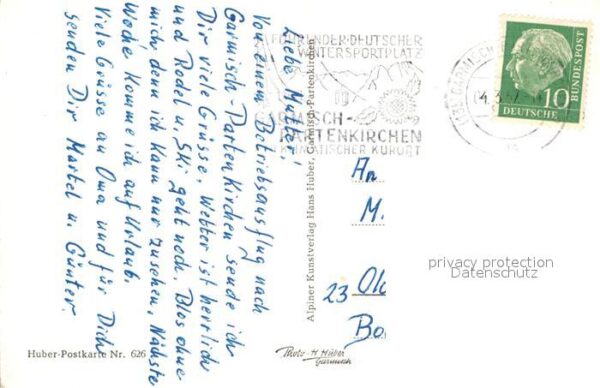 Liebe Mutter!
Von einem Betriebsausflug nach
Garmisch-Partenkirchen sende ich
Dir viele Grüsse. Wetter ist herrlich
und Rodel u. Ski geht noch. Blos ohne
mich denn ich kann nur zusehen. Nächste
Woche komme ich auf Urlaub.
Viele Grüsse an Oma und für Dich
senden Dir Markel u. Günter.
FÜHRENDER DEUTSCHER
WINTERSPORTPLATZ
GARMISCH-
PARTENKIRCHEN
KLIMATISCHER KURORT
10
DEUTSCHE
BUNDESPOST
Alpiner Kunstverlag Hans Huber, Garmisch-Partenkirchen
An
M.
23 Ol
Bo
privacy protection
Datenschutz
Huber-Postkarte Nr. 626
Photo-H. Huber
Garmisch